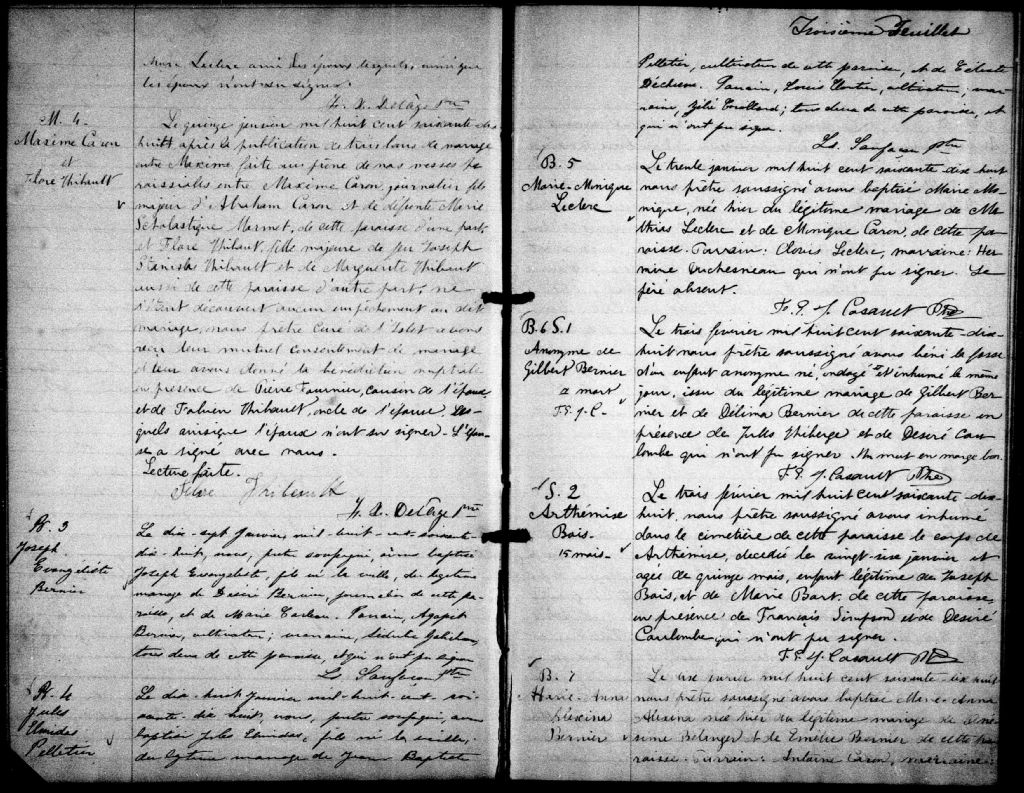 les époux n'ont su signer.
F. X. Delâge Ptre
M. 4
Maxime Caron
et
Flore Thibault
Le quinze janvier mil huit cent soixante dix
huit après la publication de trois bans de mariage
entre Maxime faite au prône de nos messes pa
roissiales entre Maxime Caron, journalier fils
majeur d'Abraham Caron et de défunte Marie
Scholastique Mormet, de cette paroisse d'une part
et Flore Thibault, fille majeure de feu Joseph
Stanislas Thibault et de Marguerite Thibault
aussi de cette paroisse d'autre part, ne
s'étant découvert aucun empêchement au dit
mariage, nous prêtre Curé de l'Islet avons
reçu leur mutuel consentement de mariage
et leur avons donné la bénédiction nuptiale
en présence de Pierre Fournier, cousin de l'époux
et de Fabien Thibault, oncle de l'épouse. Les-
quels ainsi que l'époux n'ont su signer. L'épou-
se a signé avec nous.
Lecture faite.
Flore Thibault
F. X. Delâge Ptre
B. 3
Joseph
Evangéliste
Bernier
Le dix-sept Janvier, mil-huit-cent-soixante-
dix-huit, nous, prêtre soussigné, avons baptisé
Joseph Evangéliste, fils né la veille, du légitime
mariage de Désiré Bernier, journalier de cette pa-
roisse, et de Marie Parrain, Agapit
Bernier, cultivateur; marraine,
tous deux de cette paroisse, et qui n'ont pu signer
Ls. Sanfaçon Ptre
B. 4
Jules
Pelletier
Le dix-huit Janvier mil-huit-cent-soi-
xante-dix-huit, nous, prêtre soussigné, avons
baptisé Jules fils né la veille,
du légitime mariage de Jean Baptiste
Troisième Feuillet
Pelletier, cultivateur de cette paroisse, et de Céleste
Dechêne. Parrain, Louis cultivateur, mar-
raine, Zélé tous deux de cette paroisse, et
qui n'ont pu signer.
Ls. Sanfaçon Ptre
B. 5
Marie-Monique
Leclerc
Le trente janvier mil huit cent soixante-dix-huit
nous prêtre soussigné avons baptisé Marie Mo-
nique, née hier du légitime mariage de Ma-
thias Leclerc et de Monique Caron, de cette pa-
roisse. Parrain: Louis Leclerc, marraine: Her-
mine Duchesneau qui n'ont pu signer. Le
père absent.
F. E. J. Casault Ptre
B. 6 S. 1
Anonyme de
Gilbert Bernier
a mort
F. E. J. C.
Le trois février mil huit cent soixante-dix-
huit nous prêtre soussigné avons béni la fosse
d'un enfant anonyme né, ondoyé et inhumé le même
jour, issu du légitime mariage de Gilbert Ber-
nier et de Délima Bernier de cette paroisse en
présence de Jules Thiberge et de Desiré Cou-
lombe qui n'ont pu signer. Un mot en marge bon.
F. E. J. Casault Ptre
S. 2
Arthémise
Bois
15 mois
Le trois février mil huit cent soixante-dix-
huit, nous prêtre soussigné avons inhumé
dans le cimetière de cette paroisse le corps de
Arthémise, decedée le vingt-six janvier et
agée de quinze mois, enfant légitime de Joseph
Bois, et de Marie Bart, de cette paroisse,
en présence de François Simpson et de Desiré
Coulombe qui n'ont pu signer.
F. E. J. Casault Ptre
B. 7
Marie-Anna
Alexina
Bernier
mil huit cent soixante-dix huit
nous prêtre soussigné avons baptisé Marie-Anna
Alexina née hier du légitime mariage de
Bélanger et de Emélie Bernier de cette pa-
roisse. Parrain: Antoine Caron, marraine: